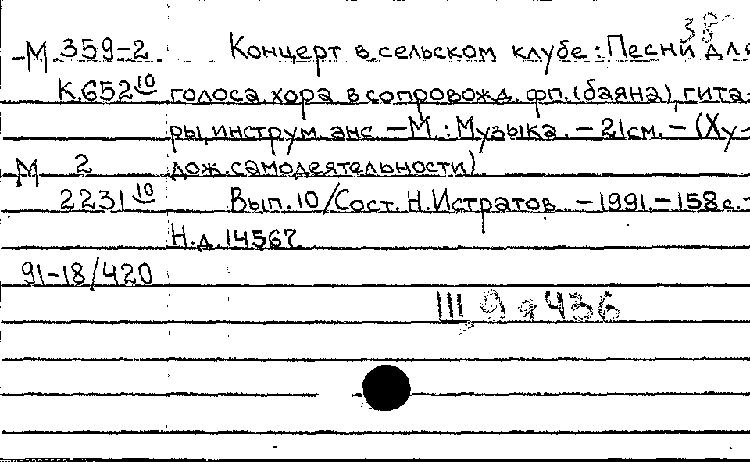 М 359-2 Концерт в сельском клубе: Песни для
К.652 10 голоса, хора в сопровожд. фп. (баяна), гита-
ры, инструм. анс. – М.: Музыка. – 21см. – (Ху-
М 2 дож. самодеятельности).
2231 10 Вып. 10 / Сост. Н. Истратов. – 1991. – 158 с. –
Н.д. 14567.
91-18/420
III 9 436